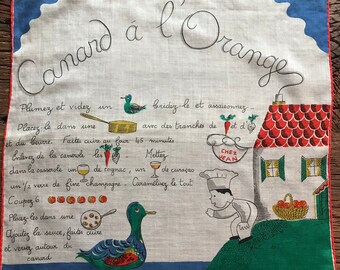 Canard á l'Orange
Plumez et videz un bridez-le et assaisonnez
Placez-le dans une avec des tranches de et d'
et du beurre. Faites cuire au four 45 minutes
Enlevez de la casserole les Mettez
dans la casserole un de cognac, un de curaçao
un ½ verre de fine champagne. Caramélisez le tout
CHEZ
JEAN
Coupez 6
Placez-les dans une
Ajoutez la sauce, faites cuire
et versez autour du
canard